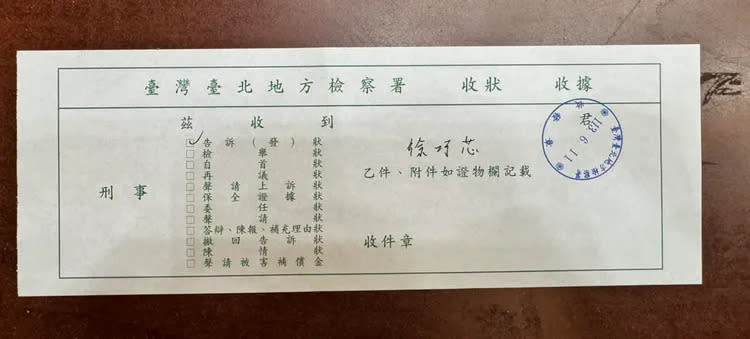 臺灣臺北地方檢察署 收狀 收據
茲收到 徐巧芯 君
刑事
☑告訴(發)狀
□檢舉狀
□自首狀
□再議狀
□聲請上訴狀
□保全證據狀
□委任狀
□聲請狀
□答辯、陳報、補充理由狀
□撤回告訴狀
□陳情狀
□聲請被害補償金
乙件、附件如證物欄記載
收件章
臺灣臺北地方檢察署
113.6.11
收狀章